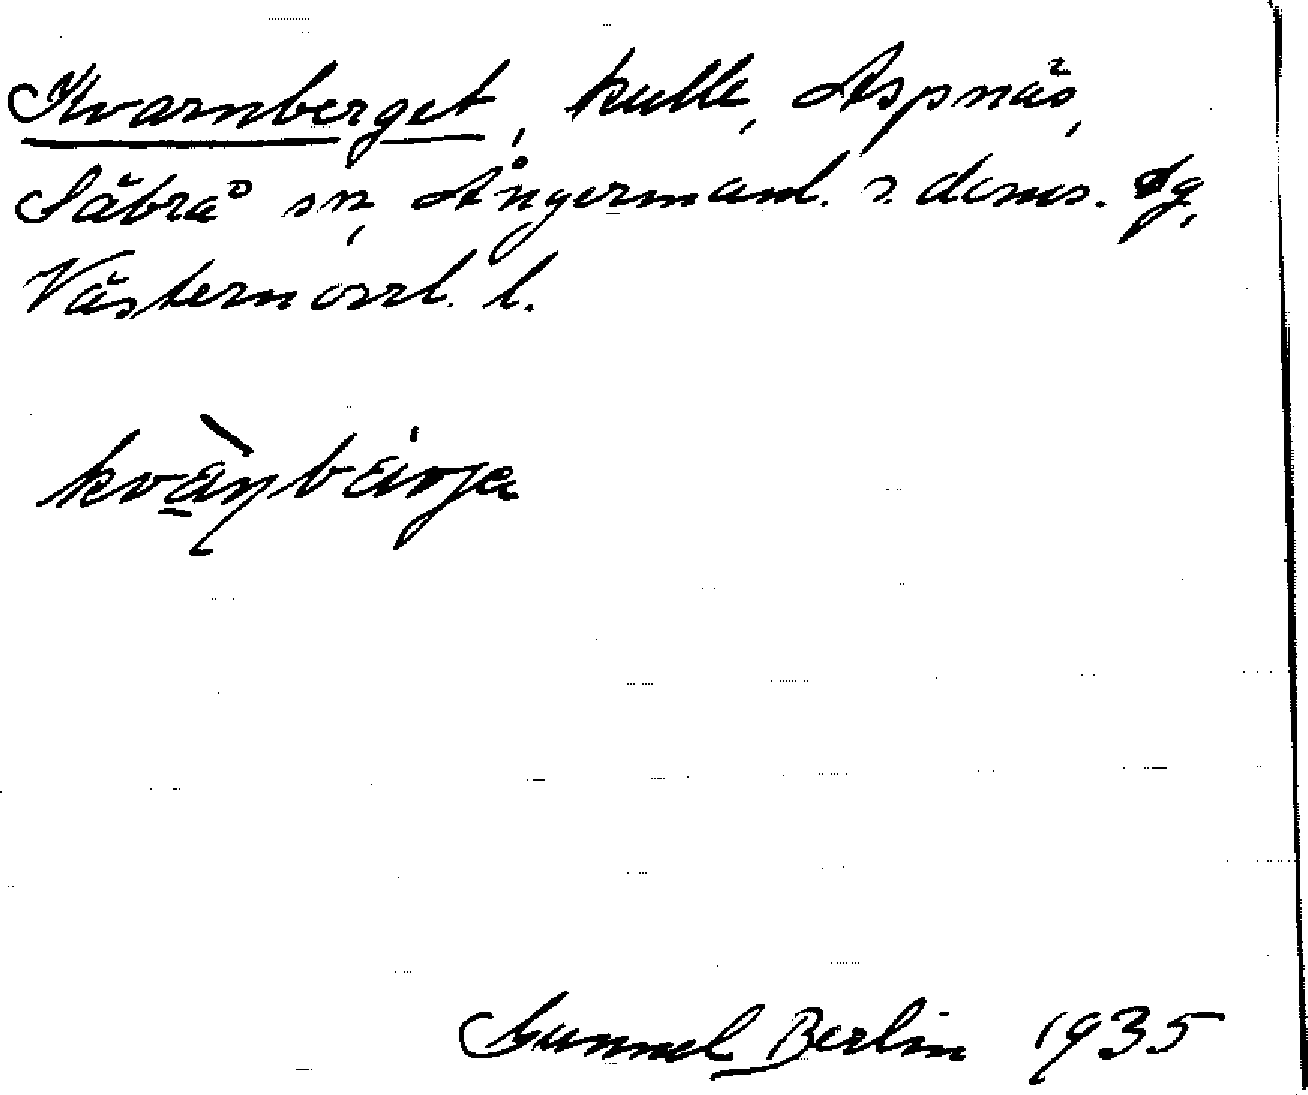 Kvarnberget, kulle, Aspnäs,
Säbrå sn, Ångermanl. s. doms. dg,
Västernorrl. l.
Gunnel Berlin 1935